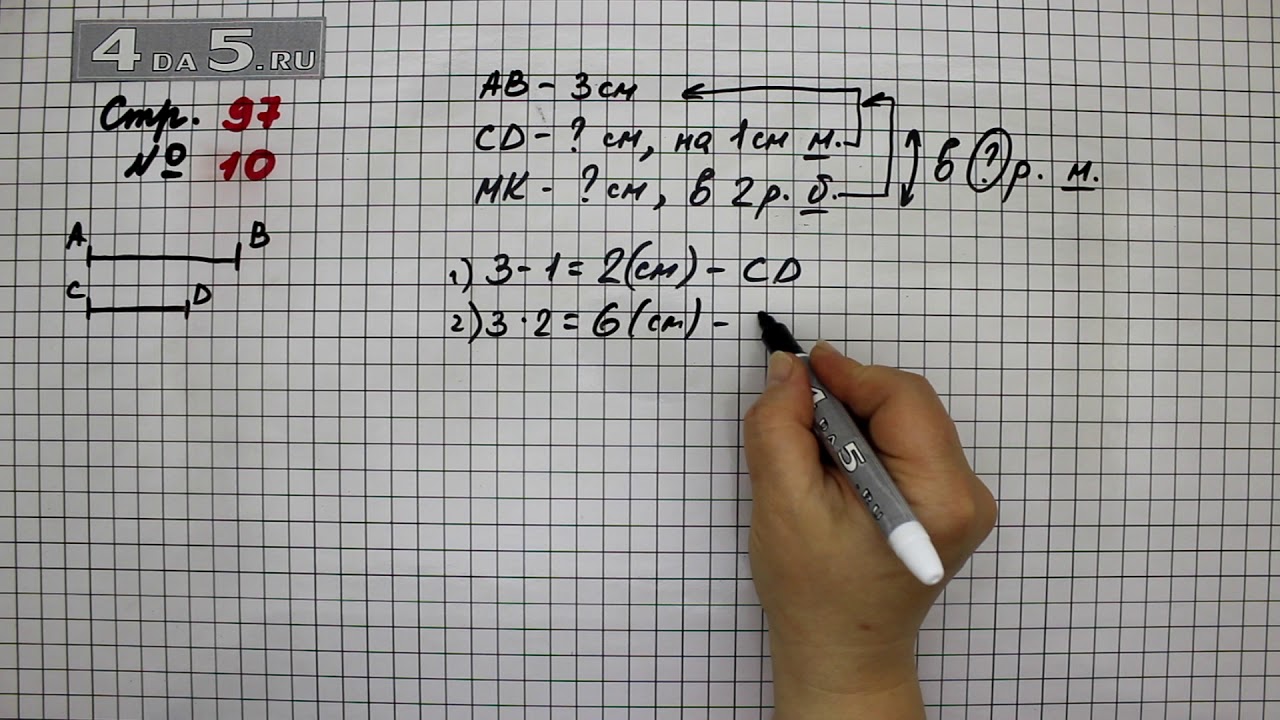 4DA5.RU
Стр. 97
№ 10
A B
C D
AB - 3 см
CD - ? см, на 1 см м.
МК - ? см, в 2 р. б.
в ? р. м.
1) 3 - 1 = 2 (см) - CD
2) 3 · 2 = 6 (см) -
4DA5.RU